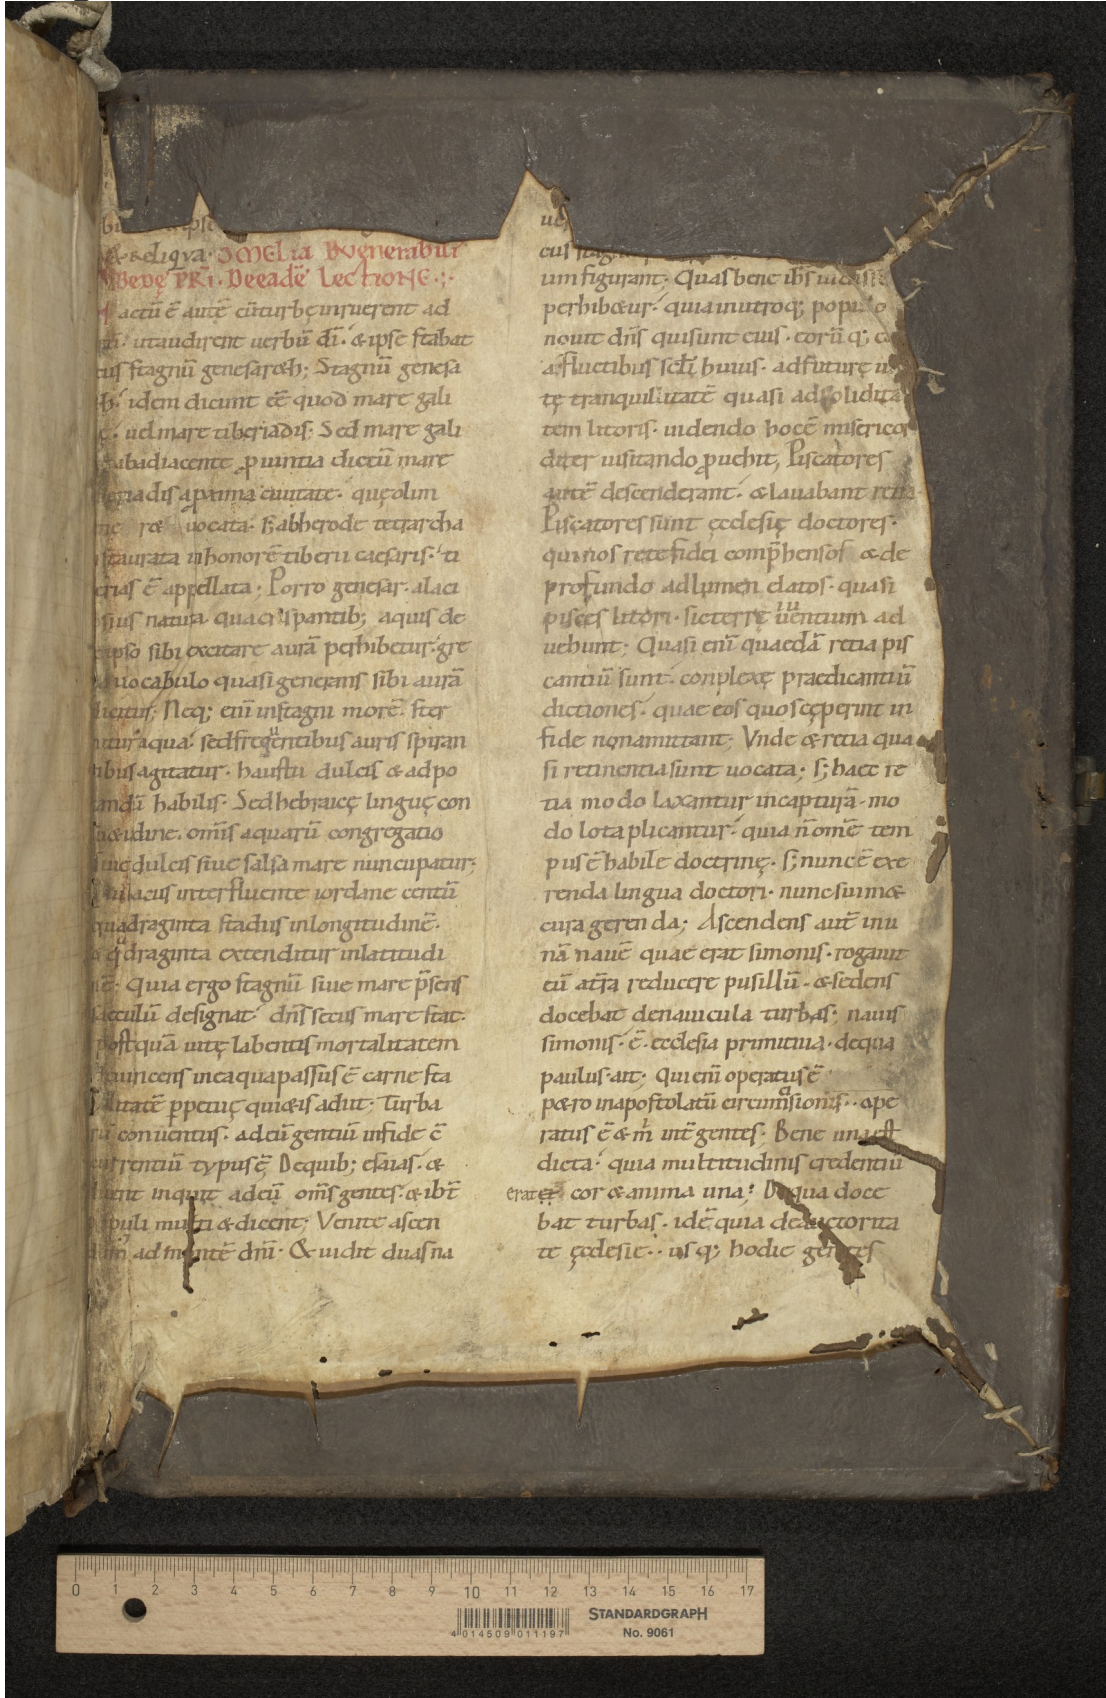 & reliqua· OMELIA BVENERABILI
BEDE PRI· DEEADĒ LECTIONE·;·
actū ē autē cū turbę inruerent ad
utaudirent uerbū dī· & ipse stabat
stagnū genesar&h; Stagnū genesa
idem dicunt eē quod mare gali
uel mare tiberiadis· Sed mare gali
abadiacente ꝓuintia dictū mare
uocata· s; abherode tetrarcha
inhonorē tiberii caesaris· ti
ē appellata; Porro genesar· alaci
natura quacrispantib; aquis de
sibi excitare aurā perhibetur· gre
uocabulo quasi generans sibi aurā
Neq; enī instagni morē ster
aqua· sedfrequentibus auris spiran
agitatur· haustu dulcis & adpo
habilis· Sedhebraicę linguę con
omīs aquarū congregatio
siuedulcis siue salsa mare nuncupatur;
lacus interfluente iordane centū
quadraginta stadiis inlongitudinē·
quadraginta extenditur inlatitudi
nē· Quia ergo stagnū siue mare p̄sens
saeculū designat· dn̄s secus mare stat·
postquā uitę labentis mortalitatem
incaquapassus ē carne sta
ꝑpetuę qui&is adiit· Turba
conuentus· adeū gentiū infide ē
typus ē· Dequib; esaias· &
inquit adeū om̄s gentes· & ib̄t
multi & dicent; Venite ascen
ad montē dnī· & uidit duas na
um figurant· Quas bene ih̄s uidisse
perhib&ur· quia inutroq; populo
nouit dn̄s quisunt eius· eorū q; co
a fluctibus scl̄i huius· adfuturę ui
tę tranquillitatē quasi adsolidita
tem litoris· uidendo hocē misericor
diter uisitando ꝓuehit, Piscatores
autē descenderant· & lauabant retia·
Piscatores sunt ęcclesię doctores·
quinos rete fidei comp̄hensos & de
profundo adlumen elatos· quasi
pisces litori· sicterrę uiuentium ad
uehunt; Quasi enī quaedā retia pis
cantiū sunt· conplexę praedicantiū
dictiones· quae eos quosceperint in
fide nonamittant; Vnde & retia qua
si retinentia sunt uocata; s; haec re
tia modo laxantur incapturā· mo
do lota plicantur· quia n̄ om̄e tem
pus ē habile doctrinę· s; nunc ē exe
renda lingua doctori· nunc suim&
cura gerenda; Ascendens autē inu
nā nauē quae erat simonis· rogauit
eū at̄ra reducere pusillū· & sedens
docebat denauicula turbas; nauis
simonis· ē· ecclesia primitiua· dequa
paulus· ait; Qui enī operatus ē
p&ro inapostolatū circumcisionis· ope
ratus ē & m̄ int̄ gentes; Bene una est
dicta· quia multitudinis credentiū
erat cor & anima una; Dequa doce
bat turbas· idē quia deauctorita
te ęcclesie· usq; hodie gentes
0 1 2 3 4 5 6 7 8 9 10 11 12 13 14 15 16 17
STANDARDGRAPH
No. 9061
4 014509 011197